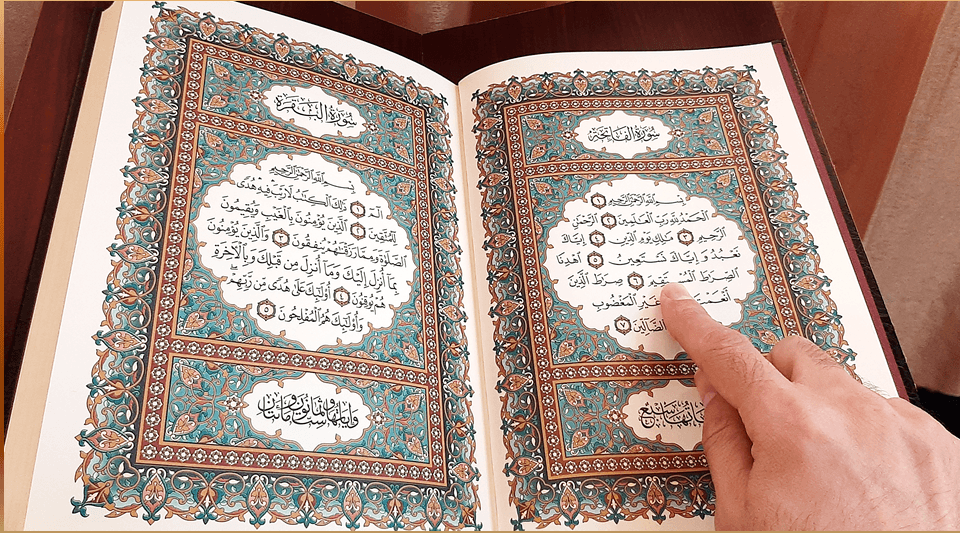 سُورَةُ الفَاتِحَةِ
بِسْمِ اللَّهِ الرَّحْمَٰنِ الرَّحِيمِ ١
الْحَمْدُ لِلَّهِ رَبِّ الْعَالَمِينَ ٢ الرَّحْمَٰنِ
الرَّحِيمِ ٣ مَالِكِ يَوْمِ الدِّينِ ٤ إِيَّاكَ
نَعْبُدُ وَإِيَّاكَ نَسْتَعِينُ ٥ اهْدِنَا
الصِّرَاطَ الْمُسْتَقِيمَ ٦ صِرَاطَ الَّذِينَ
غَيْرِ الْمَغْضُوبِ
الضَّالِّينَ ٧
سُورَةُ البَقَرَةِ
بِسْمِ اللَّهِ الرَّحْمَٰنِ الرَّحِيمِ
الٓمٓ ١ ذَٰلِكَ الْكِتَابُ لَا رَيْبَ فِيهِ هُدًى
لِلْمُتَّقِينَ ٢ الَّذِينَ يُؤْمِنُونَ بِالْغَيْبِ وَيُقِيمُونَ
الصَّلَوٰةَ وَمِمَّا رَزَقْنَاهُمْ يُنْفِقُونَ ٣ وَالَّذِينَ يُؤْمِنُونَ
بِمَا أُنْزِلَ إِلَيْكَ وَمَا أُنْزِلَ مِنْ قَبْلِكَ وَبِالْآخِرَةِ
هُمْ يُوقِنُونَ ٤ أُولَٰئِكَ عَلَىٰ هُدًى مِنْ رَبِّهِمْ
وَأُولَٰئِكَ هُمُ الْمُفْلِحُونَ ٥
وَآيَاتُهَا مِائَتَانِ وَسِتٌّ وَثَمَانُونَ